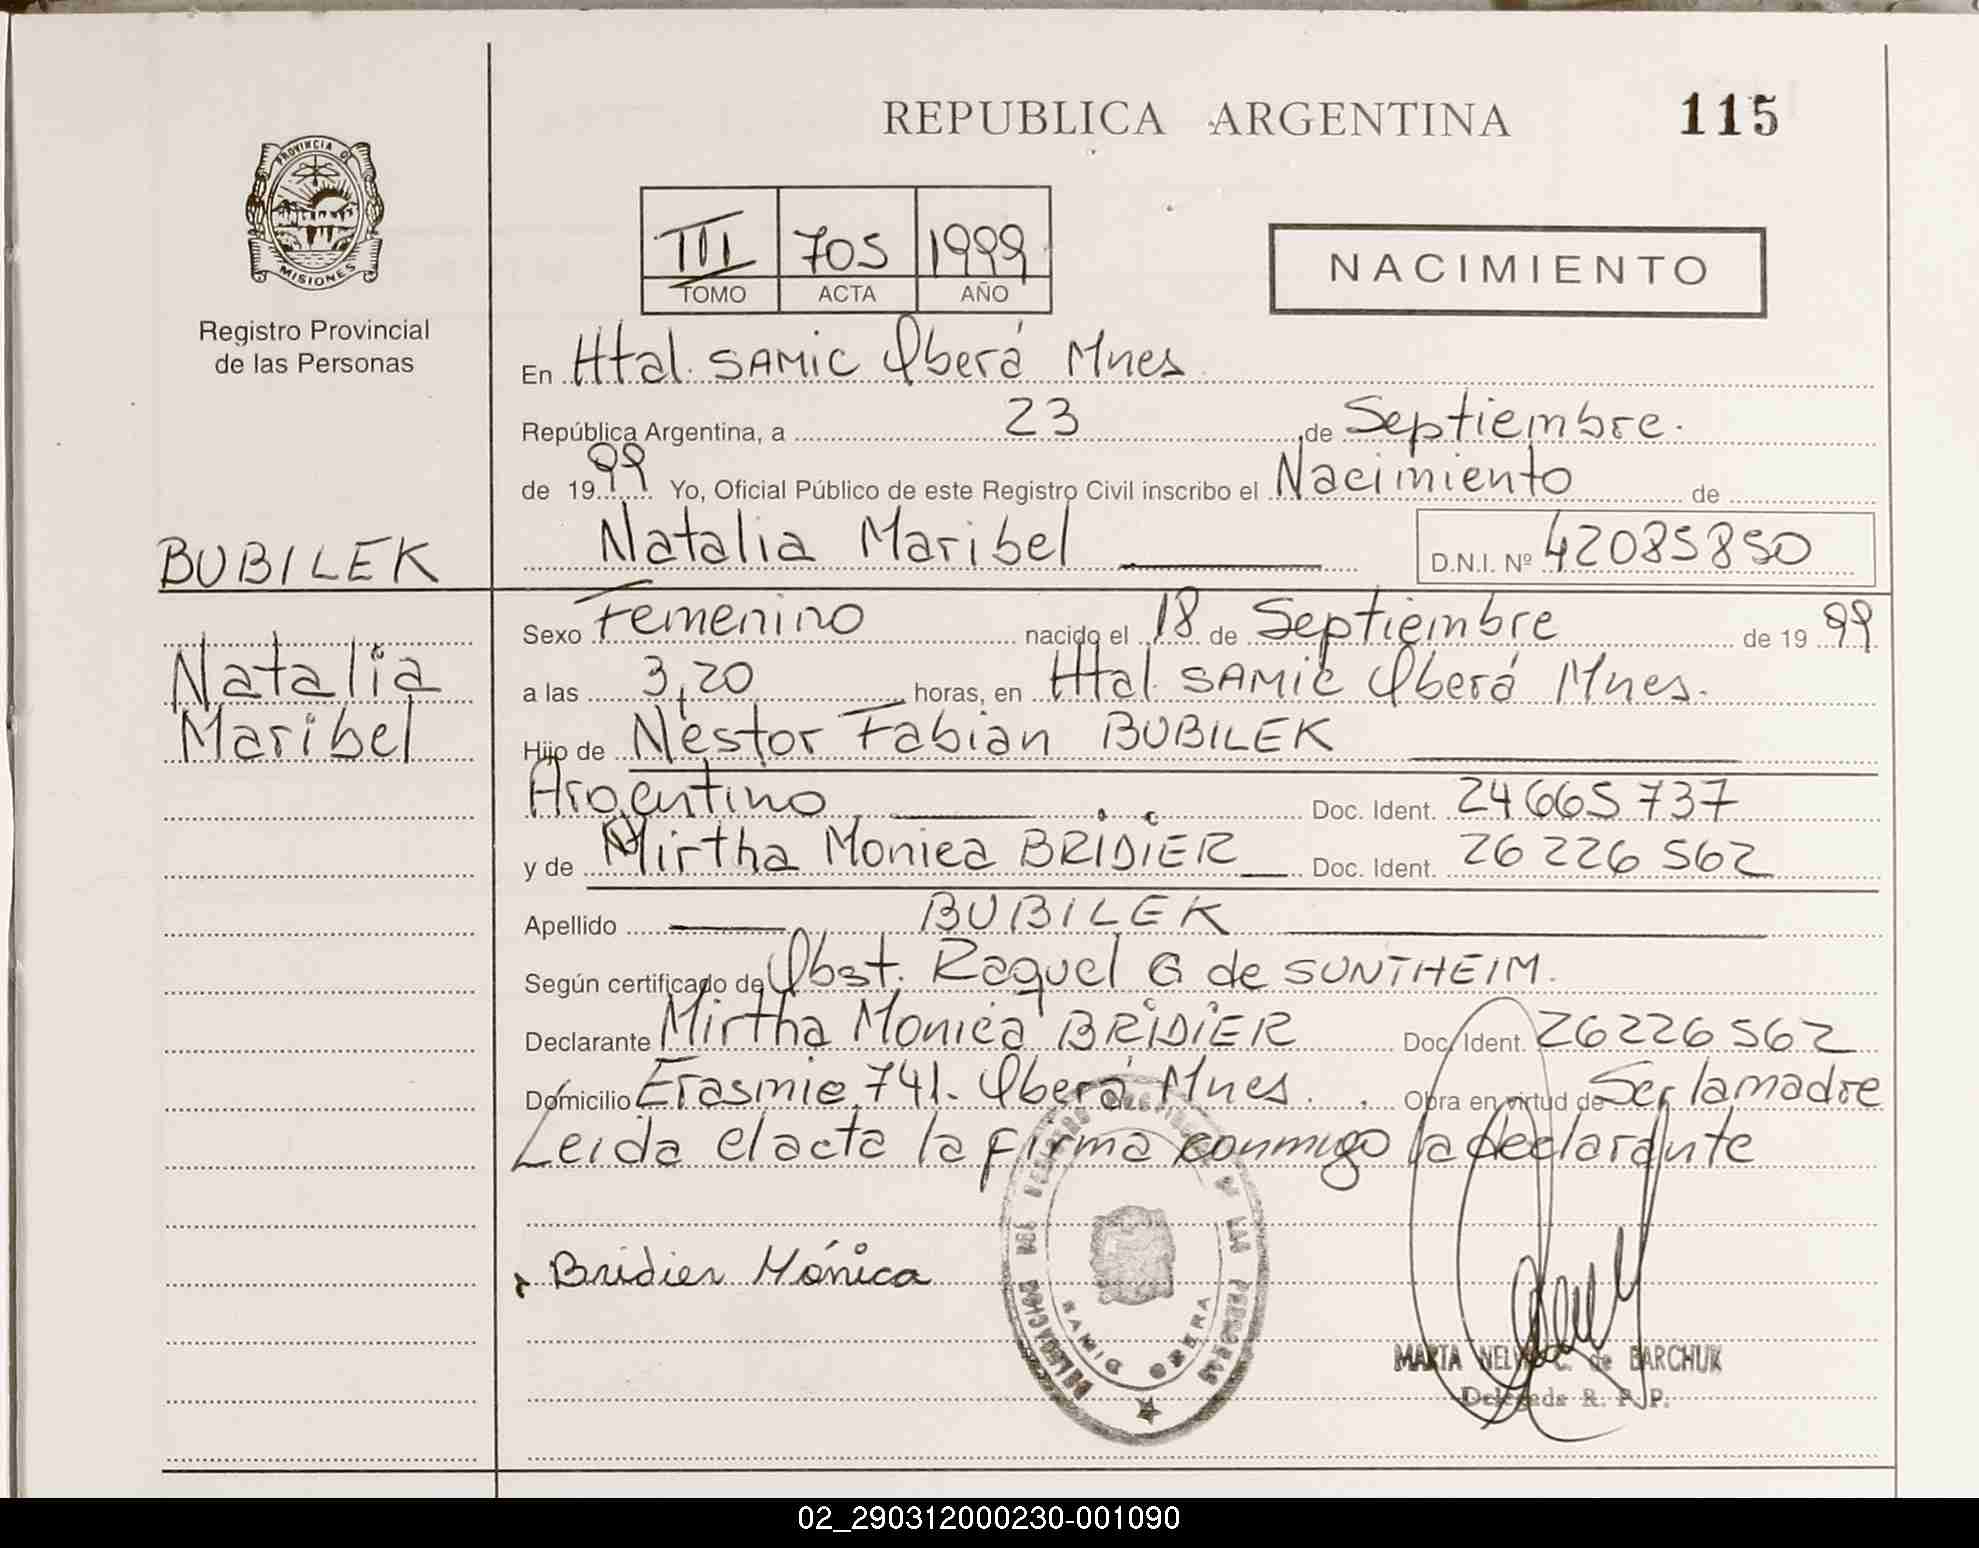 REPUBLICA ARGENTINA
115
PROVINCIA DE
MISIONES
Registro Provincial
de las Personas
III 705 1999
TOMO ACTA AÑO
NACIMIENTO
En Htal. SAMIC Oberá Mnes
República Argentina, a 23 de Septiembre.
de 1999 Yo, Oficial Público de este Registro Civil inscribo el Nacimiento de
BUBILEK
Natalia Maribel D.N.I. Nº 42085850
Sexo Femenino nacido el 18 de Septiembre de 1999
Natalia
Maribel
a las 3,20 horas, en Htal. SAMIC Oberá Mnes.
Hijo de Néstor Fabian BUBILEK
Argentino Doc. Ident. 24665737
y de Mirtha Monica BRIDIER Doc. Ident. 26226562
Apellido BUBILEK
Según certificado de Obst. Raquel G de SUNTHEIM.
Declarante Mirtha Monica BRIDIER Doc. Ident. 26226562
Domicilio Erasmie 741. Oberá Mnes. Obra en virtud de Ser la madre
Leida el acta la firma conmigo la declarante
Bridier Mónica
DELEGACION DEL REGISTRO PROVINCIAL DE LAS PERSONAS
SAMIC OBERA
MARTA NELIDA C. de BARCHUK
Delegada R. P. P.
02_290312000230-001090